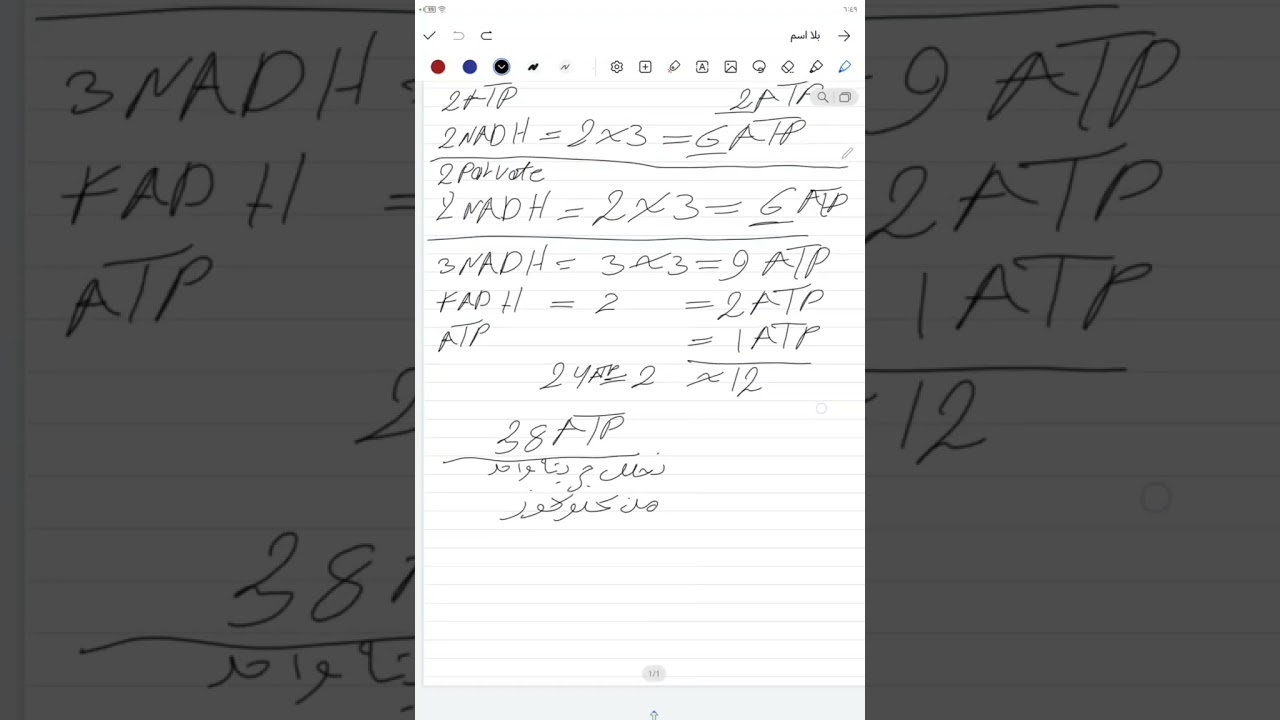 ٦:٤٩
بلا اسم
2ATP 2ATP
2NADH = 2×3 = 6 ATP
2 Parvate
2 NADH = 2×3 = 6 ATP
3NADH = 3×3 = 9 ATP
FADH = 2 = 2 ATP
ATP = 1 ATP
24 ATP = 2 × 12
38 ATP
تحلل واحد
من كلوكوز
1/1